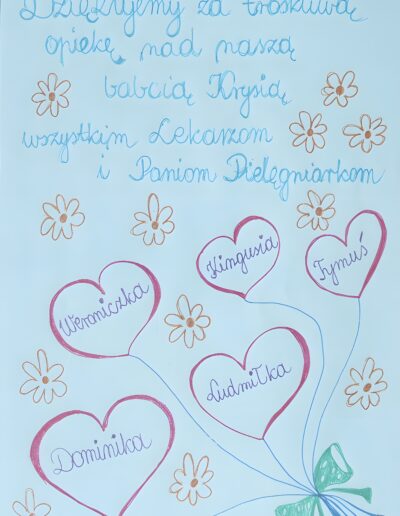 Dziękujemy za troskliwą
opiekę, nad naszą
babcią Krysią,
wszystkim Lekarzom
i Paniom Pielęgniarkom
Kingusia
Tymuś
Weroniczka
Ludmiłka
Dominika